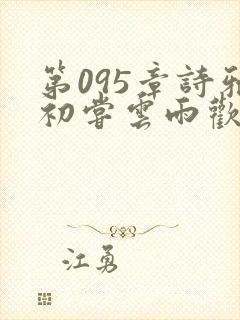 第095章詩雅
初嘗雲雨歡
江勇